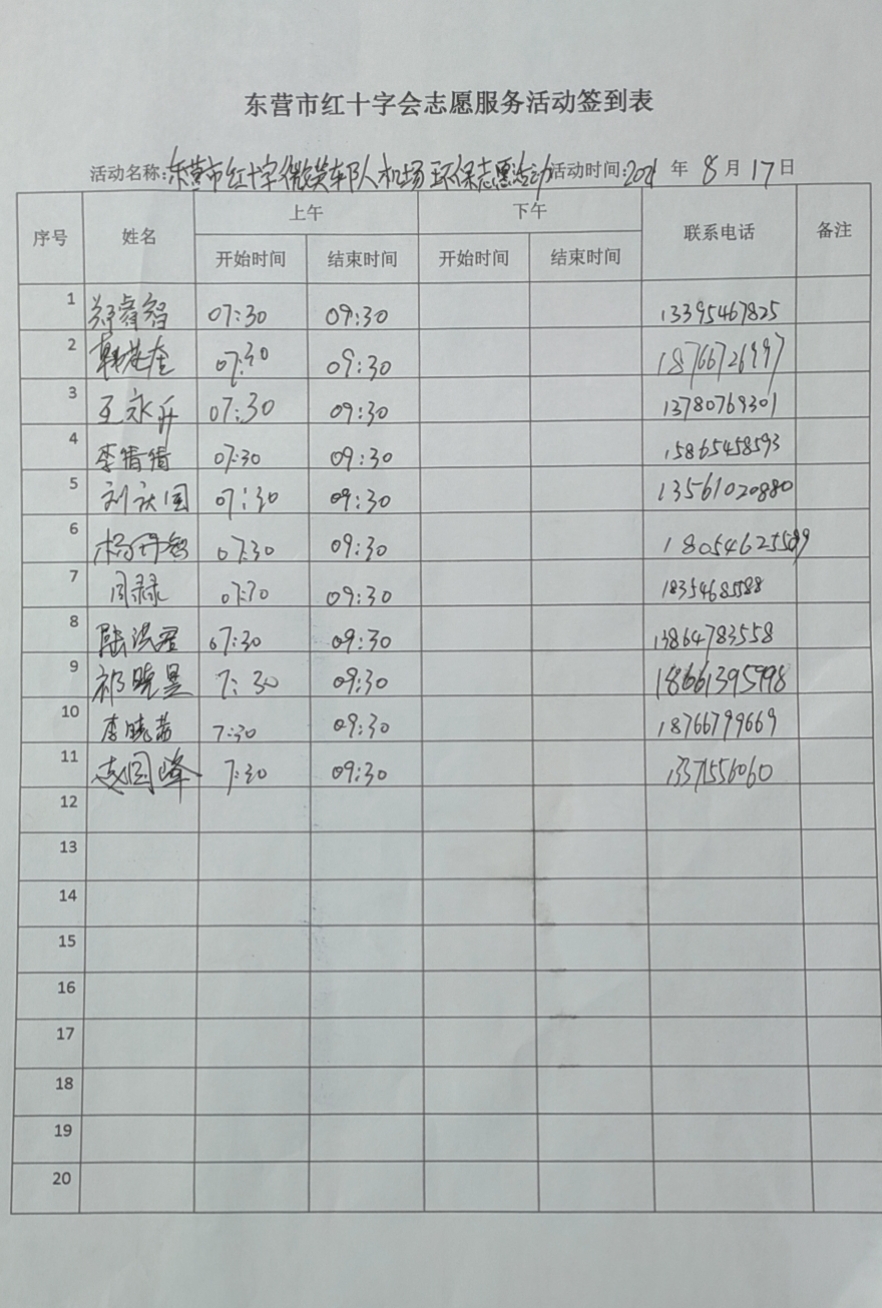 东营市红十字会志愿服务活动签到表
活动名称:东营市红十字微笑车队机场环保志愿活动 活动时间:2021 年 8 月 17 日
序号 姓名 上午 下午 联系电话 备注
开始时间 结束时间 开始时间 结束时间
1 郑睿智 07:30 09:30 13395467825
2 07:30 09:30 18766726997
3 王永升 07:30 09:30 13780769301
4 李倩倩 07:30 09:30 15865458593
5 刘庆国 07:30 09:30 13561020880
6 07:30 09:30
7 周禄 07:30 09:30
8 陆洪君 07:30 09:30 13864783558
9 祁晓昊 7:30 09:30 18661395998
10 李晓茜 7:30 09:30 18766799669
11 赵国峰 7:30 09:30 13371556060
12
13
14
15
16
17
18
19
20